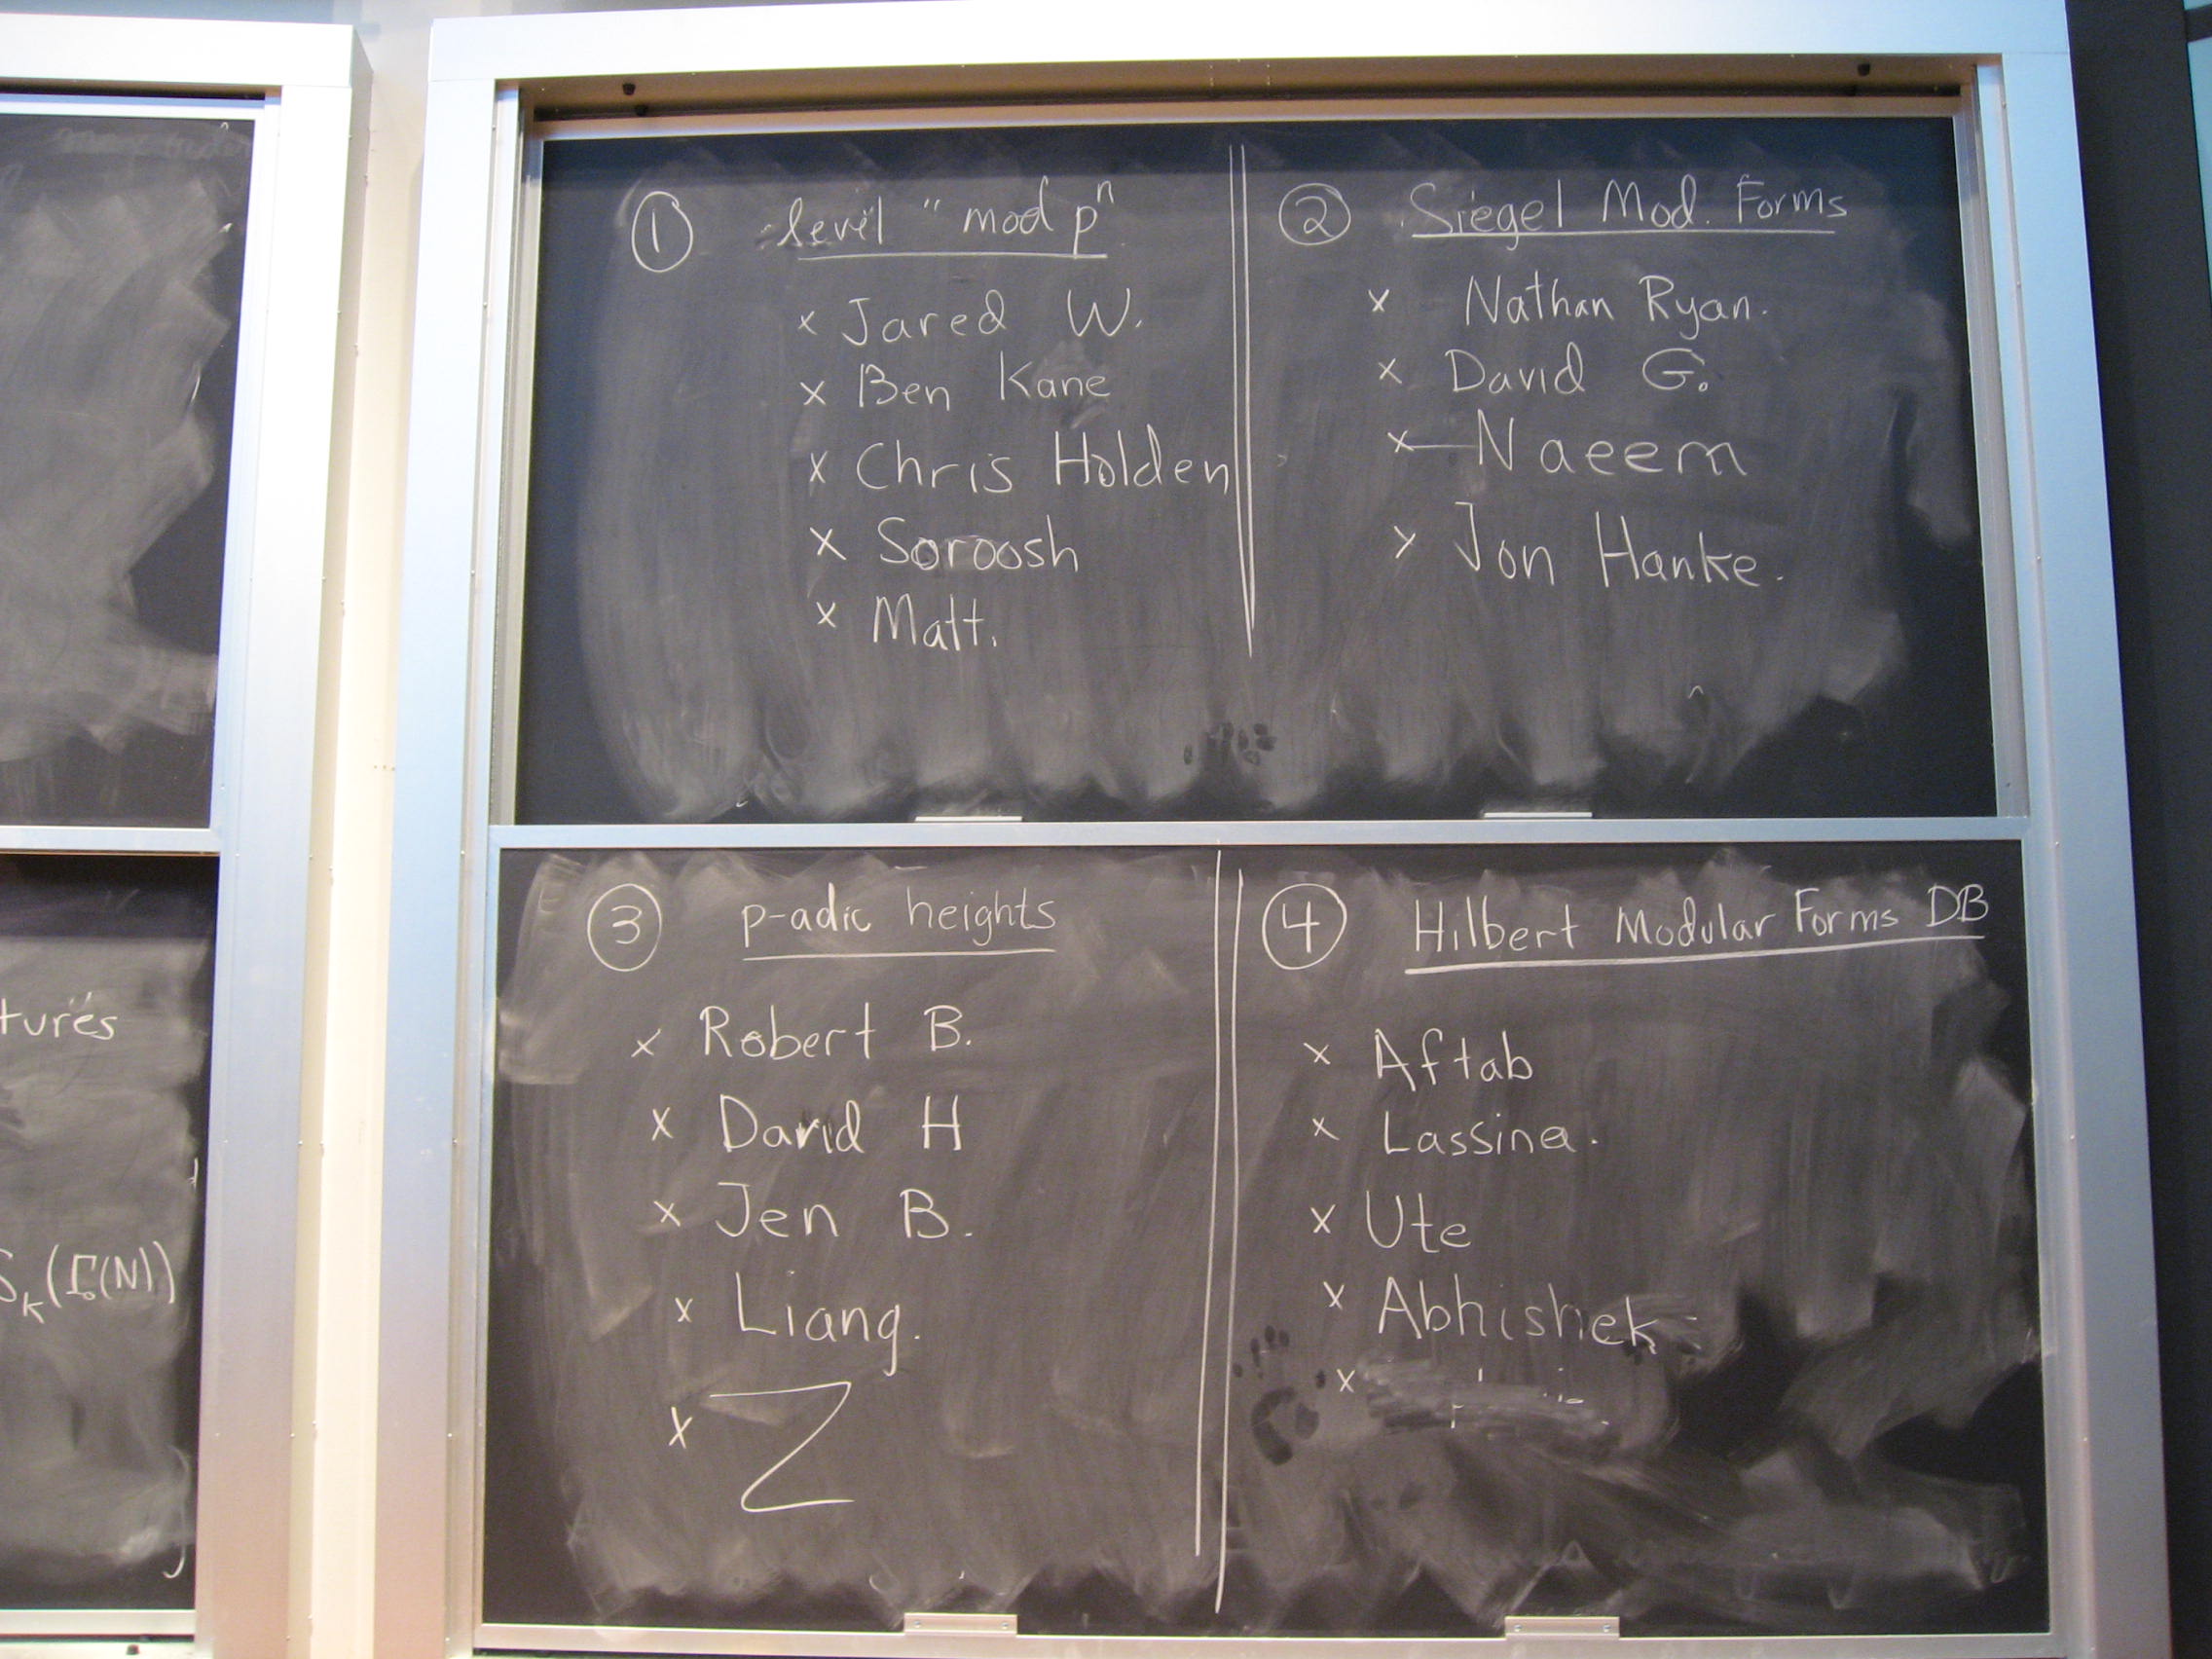 ① level " mod pⁿ
x Jared W.
x Ben Kane
x Chris Holden
x Soroosh
x Matt.
② Siegel Mod. Forms
x Nathan Ryan.
x David G.
x Naeem
x Jon Hanke.
③ p-adic heights
x Robert B.
x David H
x Jen B.
x Liang.
x Z
④ Hilbert Modular Forms DB
x Aftab
x Lassina.
x Ute
x Abhishek
x
tures
Sₖ(Γ₀(N))